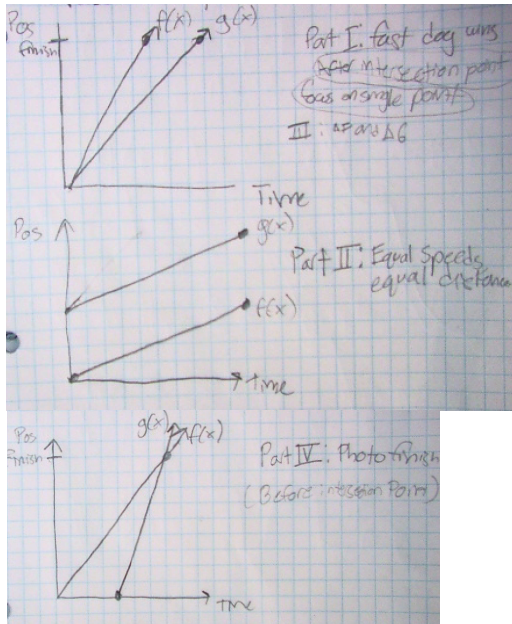 Pos
finish
f(x)
g(x)
Part I: fast dog wins
After intersection point
focus on single point
III: ΔF and ΔG
Time
Pos
g(x)
Part II: Equal Speeds,
equal distance
f(x)
Time
g(x)
f(x)
Pos
finish
Part IV: Photo finish
(Before Point)
Time